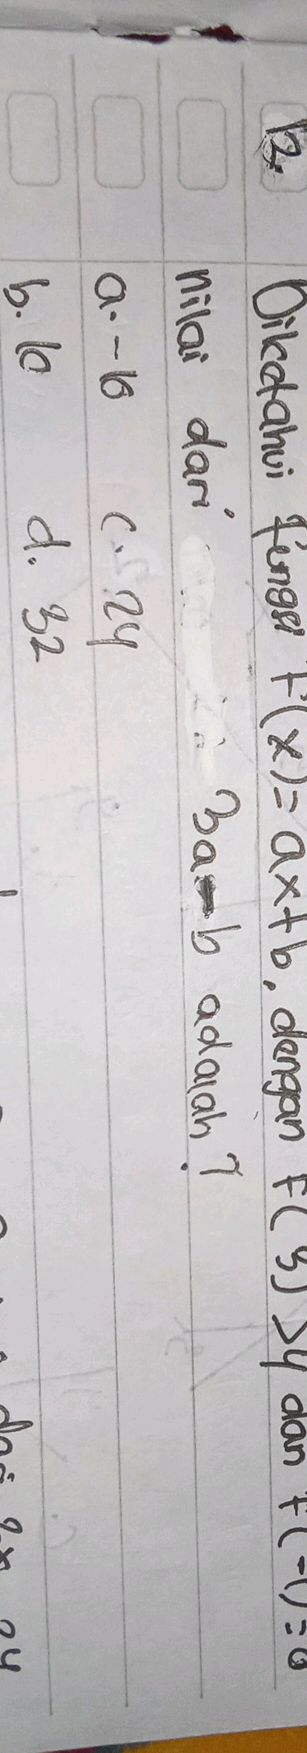 12. Diketahui fungsi f(x) = ax+b, dengan f(3) > 4 dan f(-1) = 8
nilai dari 3a-b adalah?
a. -16 c. 24
b. 10 d. 32
dari 2x 24